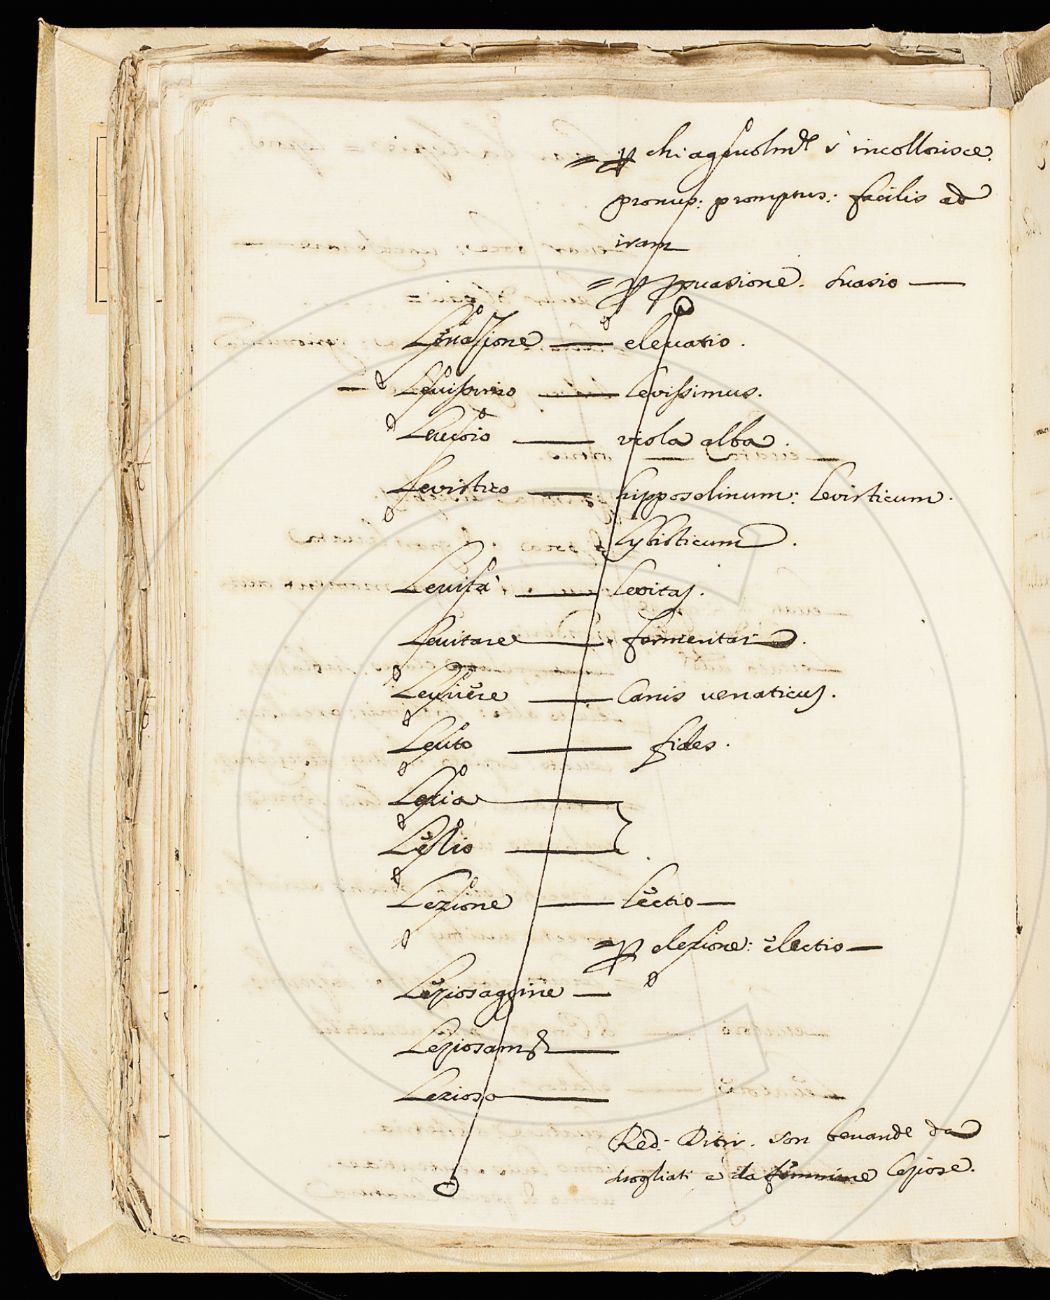 = p chi agevolmte s' incollorisce.
pronus: promptus: facilis ad
iram
= p psuasione. suasio —
Levazione — elevatio.
— Levissimo — levissimus.
Leucoio — viola alba.
Levistico — hipposelinum: levisticum.
Lybisticum.
Levità — levitas.
Levitare — fermentari.
Levriere — Canis venaticus.
Leuto — fides.
Lezia —
Lezio —
Lezione — lectio —
= p elezione: electio —
Leziosaggine —
Leziosamte —
Lezioso —
Red. Ditir. son bevande da
svogliati e da femmine leziose.